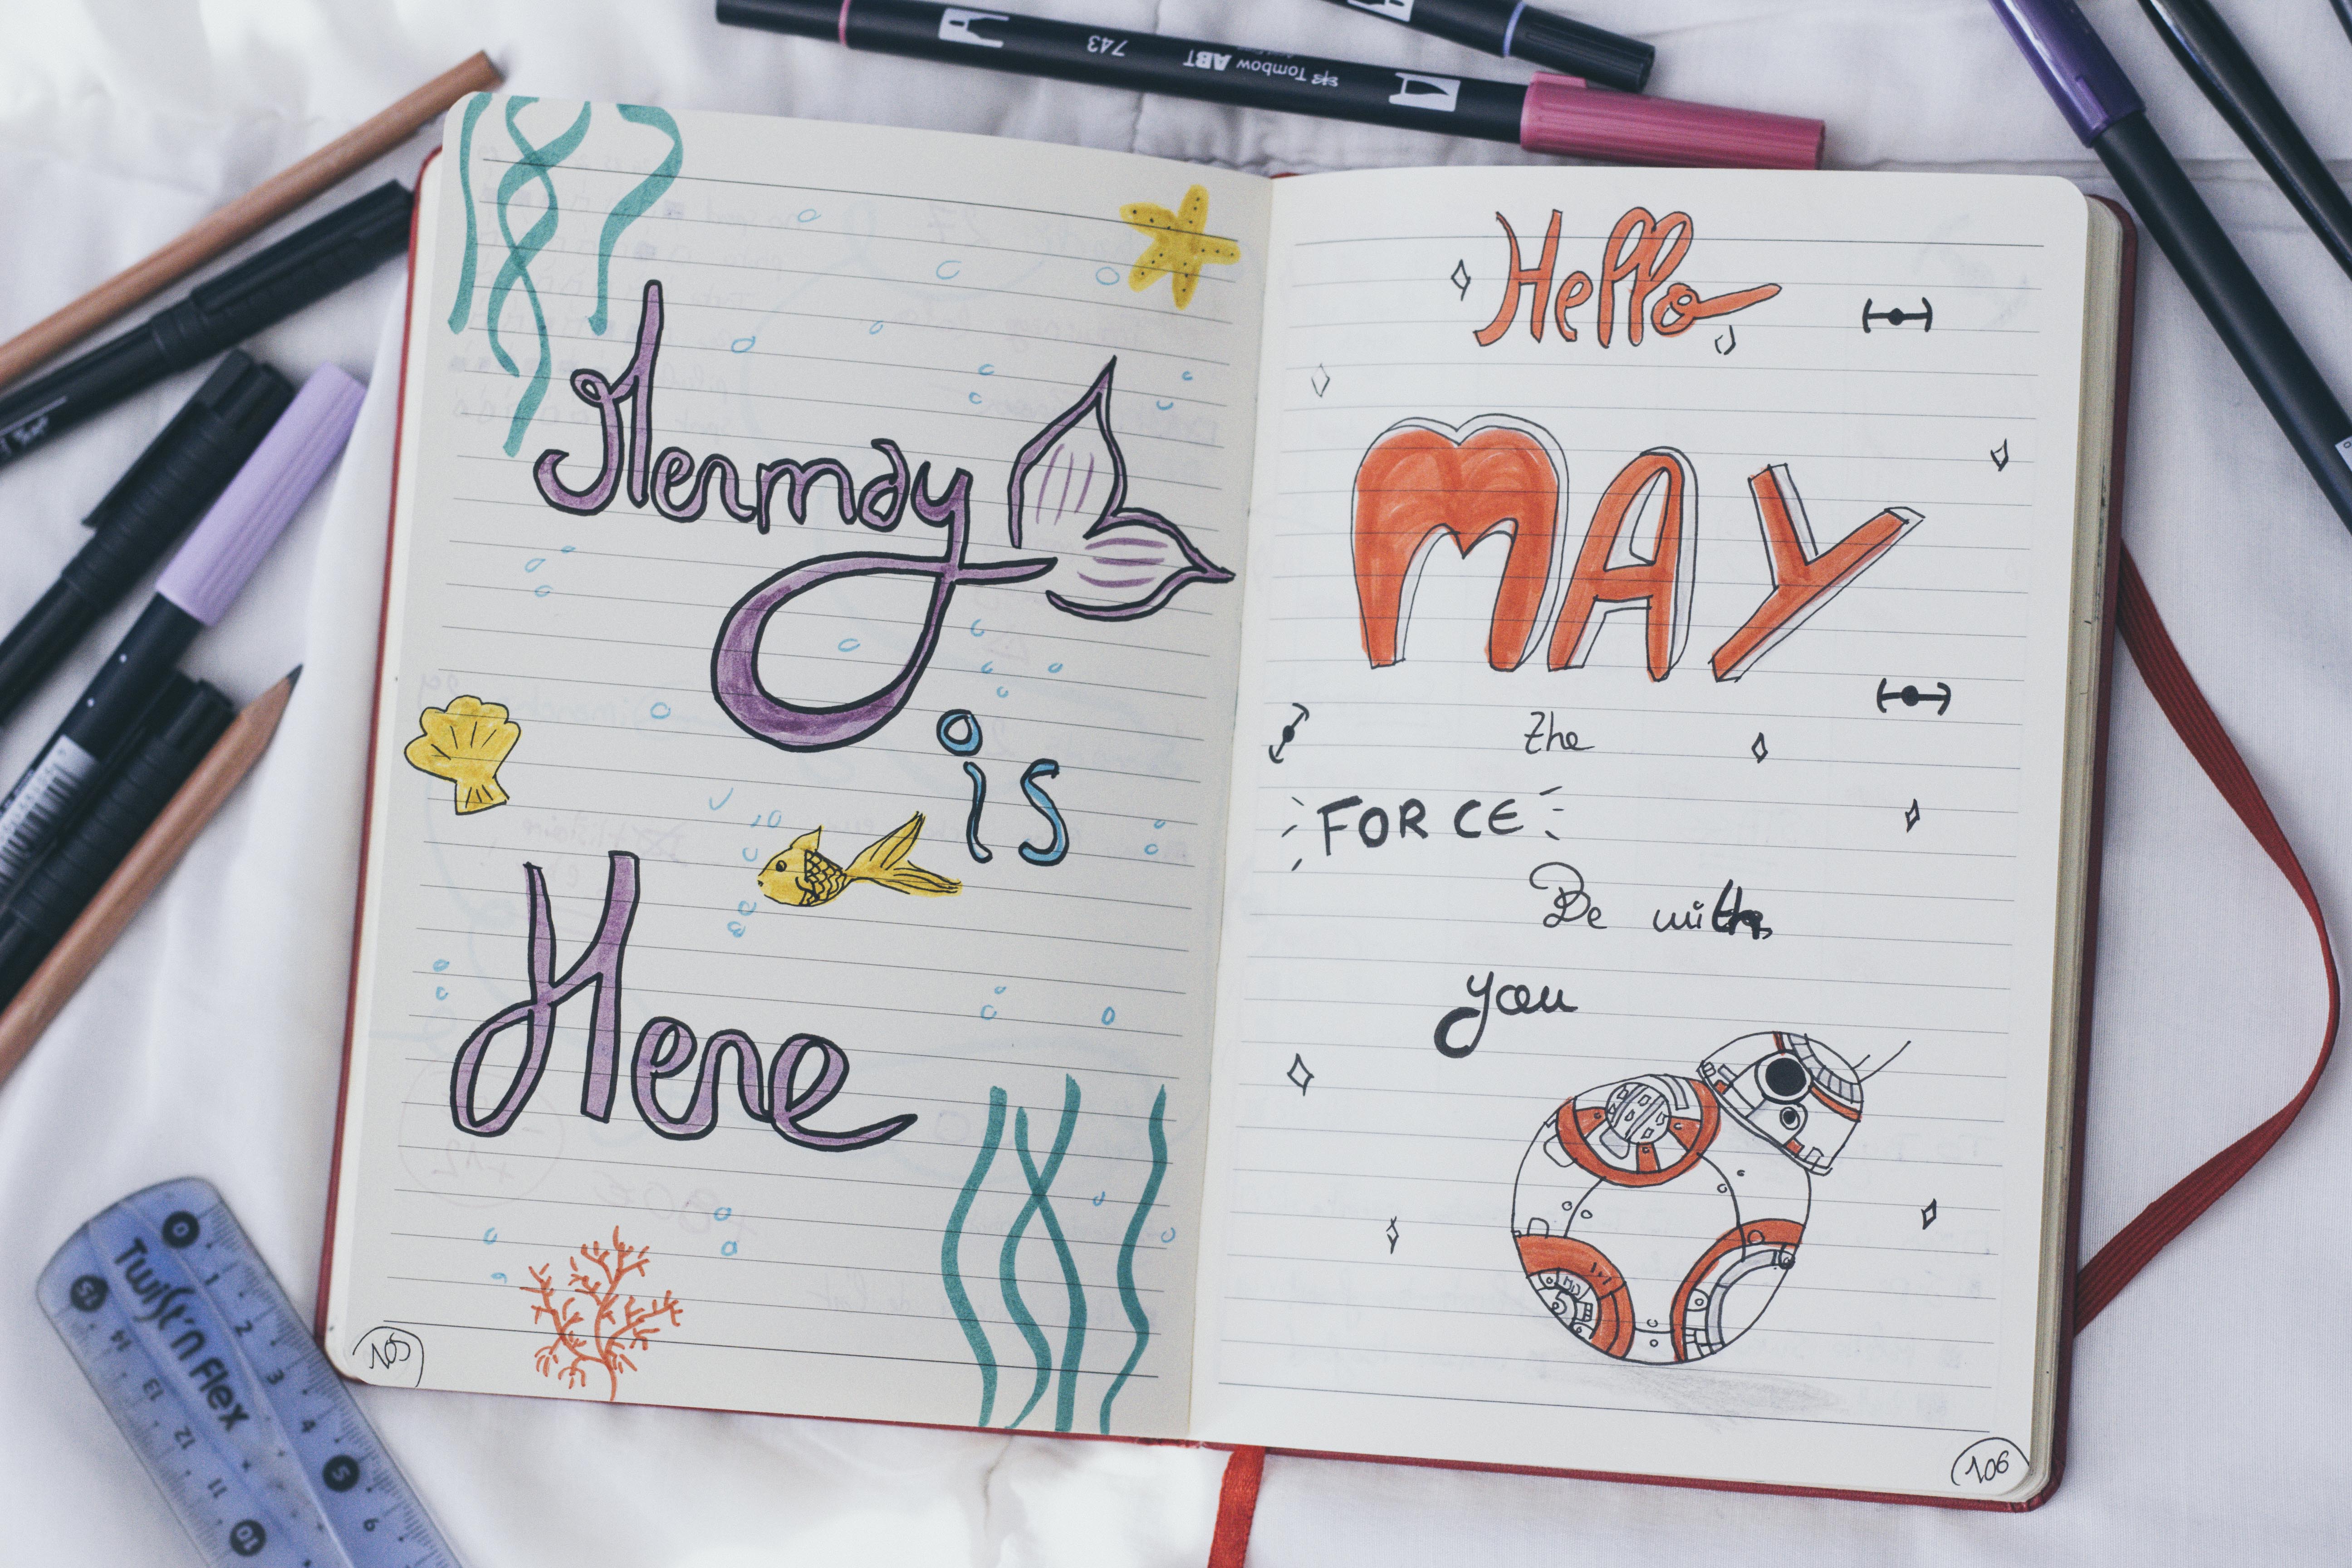 Mermay
is
Here
105
Hello
MAY
the
FORCE
Be with
you
106
Tombow ABT
743
Twist'n Flex
0
1
2
3
4
5
6
15
14
13
12
11
10